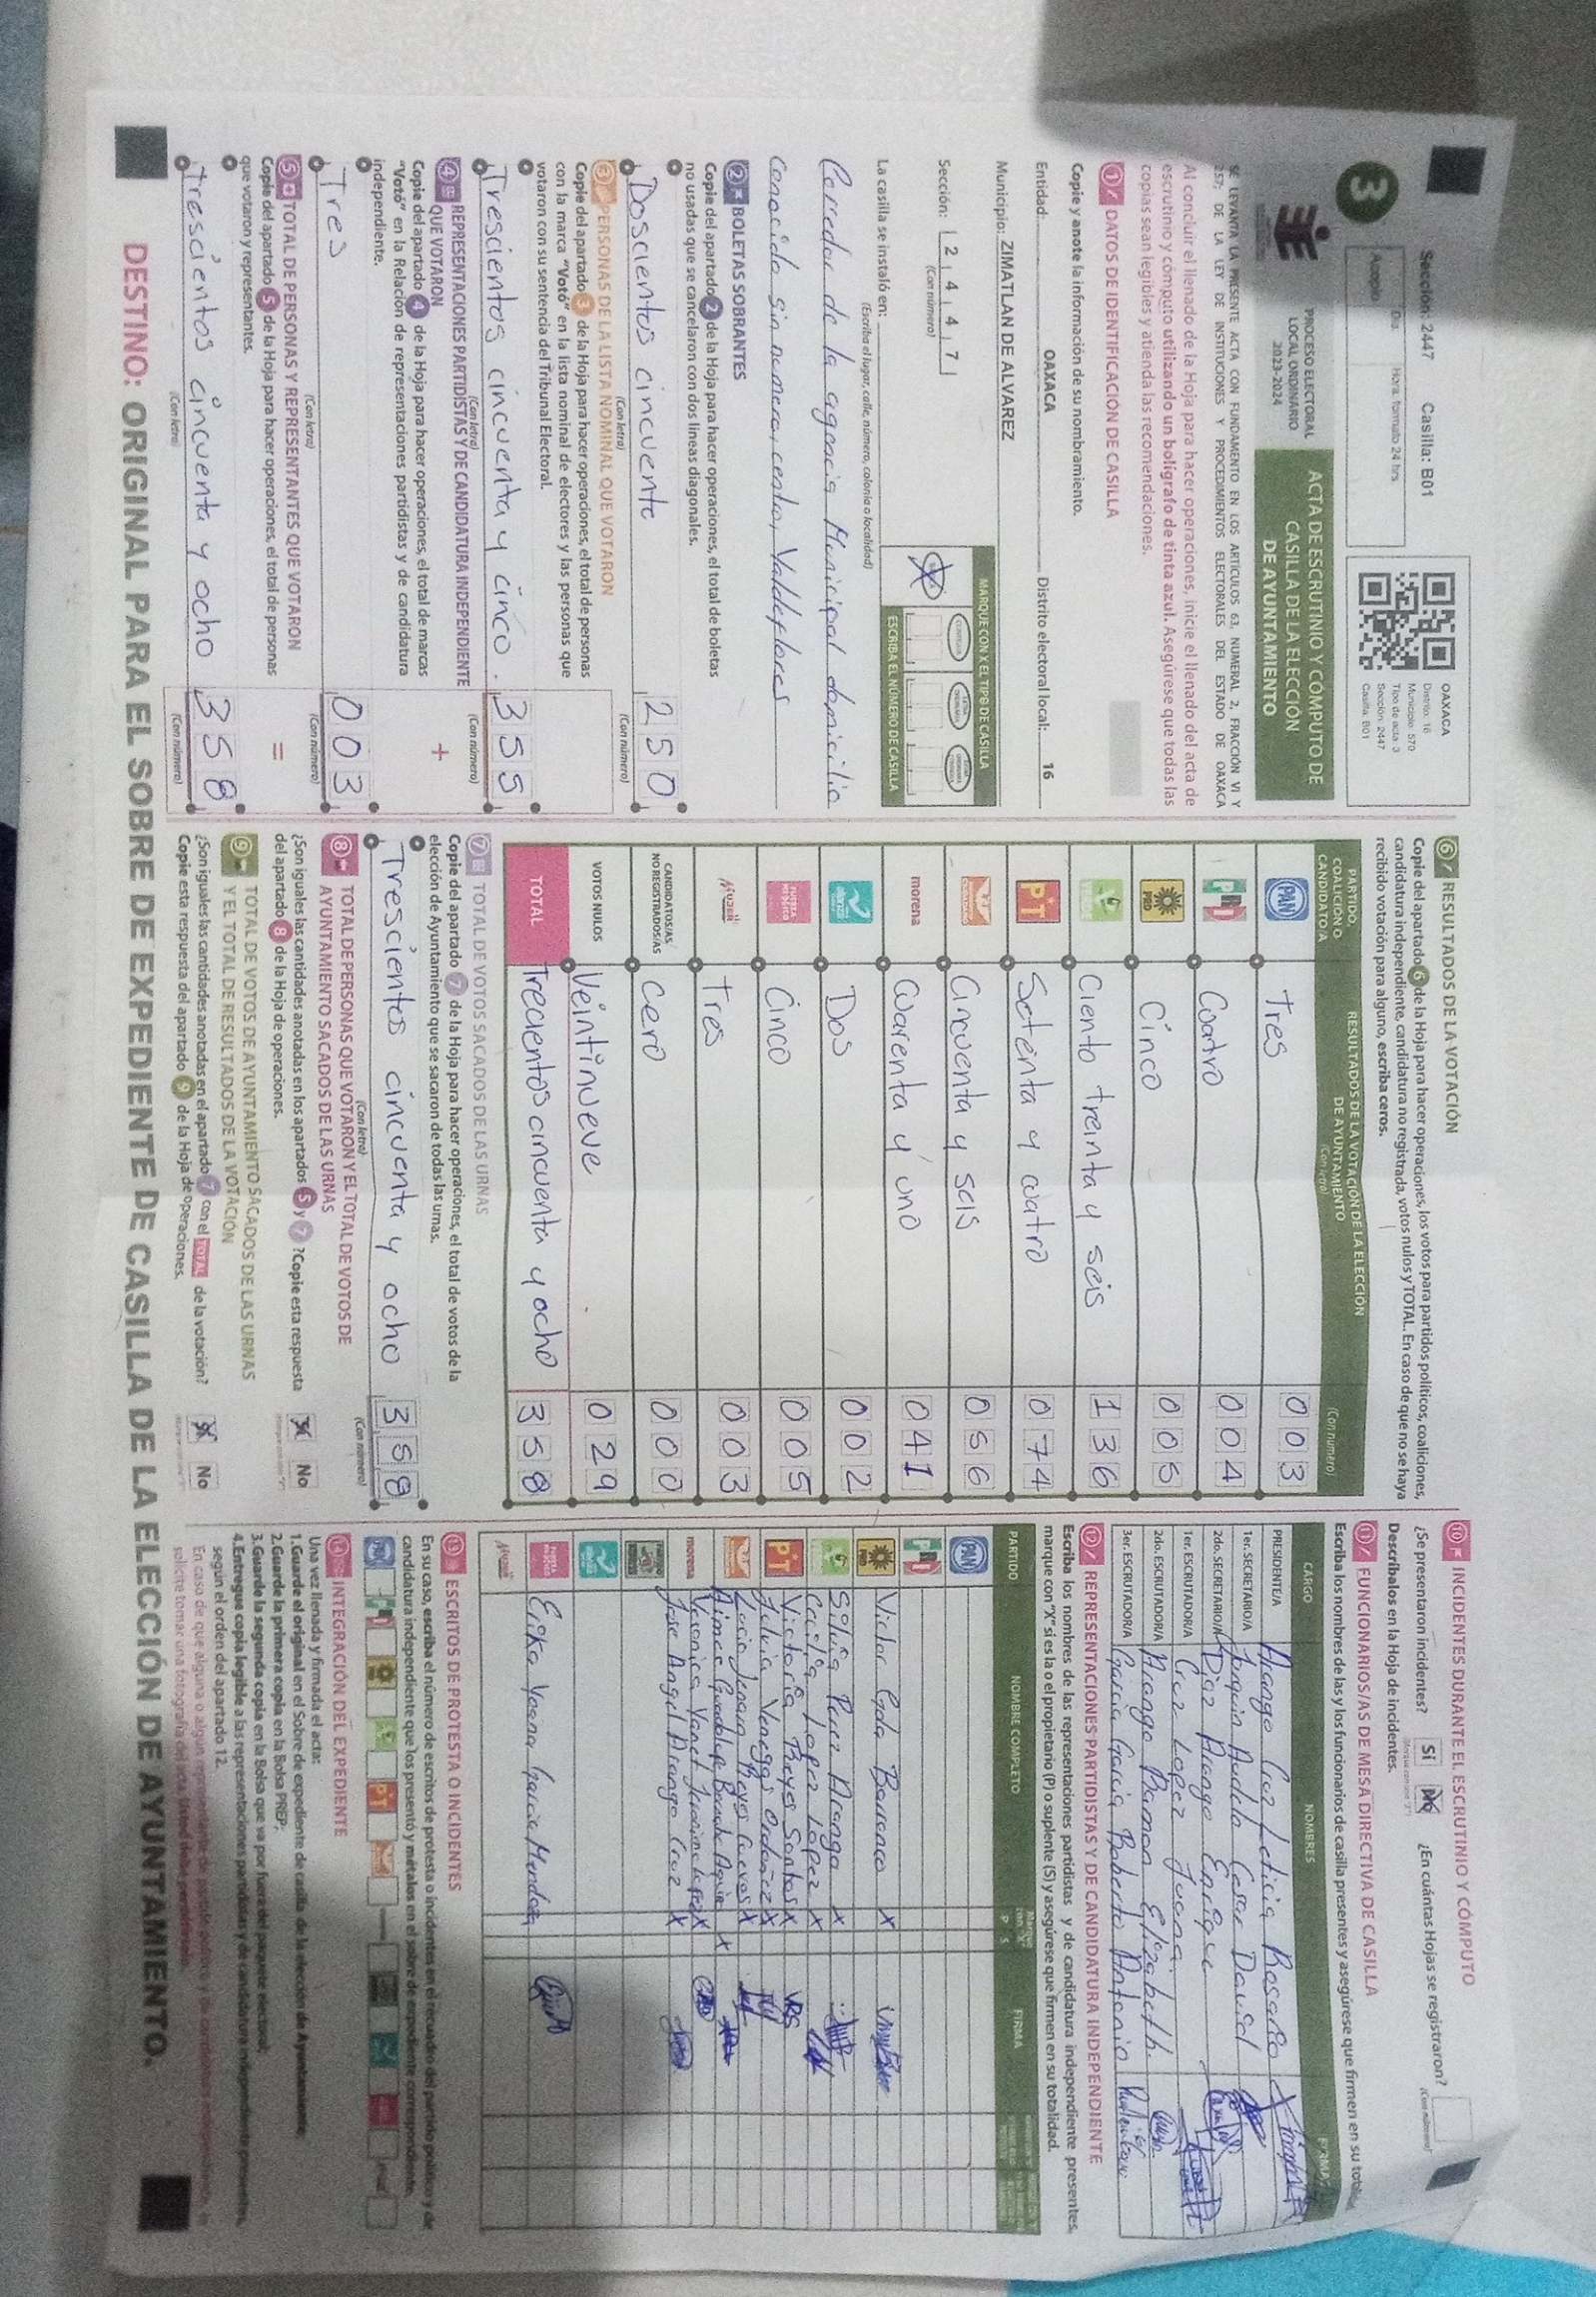 Sección: 2447 Casilla: B01
Día. Hora. formato 24 hrs
Acopio
3
OAXACA
Distrito: 16
Municipio: 570
Tipo de acta: 3
Sección: 2447
Casilla: B01
PROCESO ELECTORAL
LOCAL ORDINARIO
2023-2024
ACTA DE ESCRUTINIO Y CÓMPUTO DE
CASILLA DE LA ELECCIÓN
DE AYUNTAMIENTO
SE LEVANTA LA PRESENTE ACTA CON FUNDAMENTO EN LOS ARTÍCULOS 63, NUMERAL 2, FRACCIÓN VI Y
257; DE LA LEY DE INSTITUCIONES Y PROCEDIMIENTOS ELECTORALES DEL ESTADO DE OAXACA
Al concluir el llenado de la Hoja para hacer operaciones, inicie el llenado del acta de
escrutinio y cómputo utilizando un bolígrafo de tinta azul. Asegúrese que todas las
copias sean legibles y atienda las recomendaciones.
1 DATOS DE IDENTIFICACIÓN DE CASILLA
Copie y anote la información de su nombramiento.
Entidad: OAXACA Distrito electoral local: 16
Municipio: ZIMATLAN DE ALVAREZ
Sección: 2 4 4 7
(Con número)
MARQUE CON X EL TIPO DE CASILLA
ESCRIBA EL NÚMERO DE CASILLA
La casilla se instaló en:
(Escriba el lugar, calle, número, colonia o localidad)
Corredor de la agencia Municipal domicilio
Conocido sin numero, centro, Valdeflores
2 BOLETAS SOBRANTES
Copie del apartado 2 de la Hoja para hacer operaciones, el total de boletas
no usadas que se cancelaron con dos líneas diagonales.
Doscientos cincuenta 250
(Con letra) (Con número)
3 PERSONAS DE LA LISTA NOMINAL QUE VOTARON
Copie del apartado 3 de la Hoja para hacer operaciones, el total de personas
con la marca "Votó" en la lista nominal de electores y las personas que
votaron con su sentencia del Tribunal Electoral.
Trescientos cincuenta y cinco. 355
(Con letra) (Con número)
4 REPRESENTACIONES PARTIDISTAS Y DE CANDIDATURA INDEPENDIENTE
QUE VOTARON +
Copie del apartado 4 de la Hoja para hacer operaciones, el total de marcas
"Votó" en la Relación de representaciones partidistas y de candidatura
independiente.
Tres 003
(Con letra) (Con número)
5 TOTAL DE PERSONAS Y REPRESENTANTES QUE VOTARON
Copie del apartado 5 de la Hoja para hacer operaciones, el total de personas
que votaron y representantes. =
Trescientos cincuenta y ocho 358
(Con letra) (Con número)
6 RESULTADOS DE LA VOTACIÓN
Copie del apartado 6 de la Hoja para hacer operaciones, los votos para partidos políticos, coaliciones,
candidatura independiente, candidatura no registrada, votos nulos y TOTAL. En caso de que no se haya
recibido votación para alguno, escriba ceros.
PARTIDO,
COALICIÓN O
CANDIDATO/A
RESULTADOS DE LA VOTACIÓN DE LA ELECCIÓN
DE AYUNTAMIENTO
(Con letra) (Con número)
PAN Tres 003
PRI Cuatro 004
PRD Cinco 005
Ciento treinta y seis 136
PT Setenta y cuatro 074
Cincuenta y seis 056
morena Cuarenta y uno 041
Dos 002
FUERZA MÉXICO Cinco 005
Mujer Tres 003
CANDIDATOS/AS
NO REGISTRADOS/AS cero 000
VOTOS NULOS Veintinueve 029
TOTAL Trecientos cincuenta y ocho 358
7 TOTAL DE VOTOS SACADOS DE LAS URNAS
Copie del apartado 7 de la Hoja para hacer operaciones, el total de votos de la
elección de Ayuntamiento que se sacaron de todas las urnas.
Trescientos cincuenta y ocho 358
(Con letra) (Con número)
8 TOTAL DE PERSONAS QUE VOTARON Y EL TOTAL DE VOTOS DE
AYUNTAMIENTO SACADOS DE LAS URNAS
¿Son iguales las cantidades anotadas en los apartados 5 y 7 ?Copie esta respuesta
del apartado 8 de la Hoja de operaciones. Sí No
9 TOTAL DE VOTOS DE AYUNTAMIENTO SACADOS DE LAS URNAS
Y EL TOTAL DE RESULTADOS DE LA VOTACIÓN
¿Son iguales las cantidades anotadas en el apartado 7 con el TOTAL de la votación?
Copie esta respuesta del apartado 9 de la Hoja de operaciones. Sí No
10 INCIDENTES DURANTE EL ESCRUTINIO Y CÓMPUTO
¿Se presentaron incidentes? Sí No ¿En cuántas Hojas se registraron?
(Con número)
Descríbalos en la Hoja de incidentes.
11 FUNCIONARIOS/AS DE MESA DIRECTIVA DE CASILLA
Escriba los nombres de las y los funcionarios de casilla presentes y asegúrese que firmen en su
CARGO NOMBRES FIRMA
PRESIDENTE/A Arango Cruz Leticia Rosario
1er. SECRETARIO/A Joaquin Audelo Cesar David
2do. SECRETARIO/A Diaz Arango Enrique
1er. ESCRUTADOR/A Cruz Lopez Juana.
2do. ESCRUTADOR/A Arango Ramon Elizabeth.
3er. ESCRUTADOR/A Garcia Garcia Roberto Antonio
12 REPRESENTACIONES PARTIDISTAS Y DE CANDIDATURA INDEPENDIENTE
Escriba los nombres de las representaciones partidistas y de candidatura independiente presentes,
marque con "X" si es la o el propietario (P) o suplente (S) y asegúrese que firmen en su totalidad.
PARTIDO NOMBRE COMPLETO P S FIRMA
PAN
PRI
Victor Barranco X
Silvia Perez Arango X
Cecilia Lopez Lopez X
PT Victoria Reyes Santos X
Reyes Cuevas X
Aimee Guadalupe X
morena Veronica Yanet X
Jose Angel Arango Cruz X
Erika Yesena Garcia Mendoza
Mujer
13 ESCRITOS DE PROTESTA O INCIDENTES
En su caso, escriba el número de escritos de protesta o incidentes en el recuadro del partido político y de
candidatura independiente que los presentó y métalos en el sobre de expediente correspondiente.
14 INTEGRACIÓN DEL EXPEDIENTE
Una vez llenada y firmada el acta:
1.Guarde el original en el Sobre de expediente de casilla de la elección de Ayuntamiento;
2.Guarde la primera copia en la Bolsa PREP;
3.Guarde la segunda copia en la Bolsa que va por fuera del paquete electoral;
4.Entregue copia legible a las representaciones partidistas y de candidatura independiente presentes,
según el orden del apartado 12.
DESTINO: ORIGINAL PARA EL SOBRE DE EXPEDIENTE DE CASILLA DE LA ELECCIÓN DE AYUNTAMIENTO.